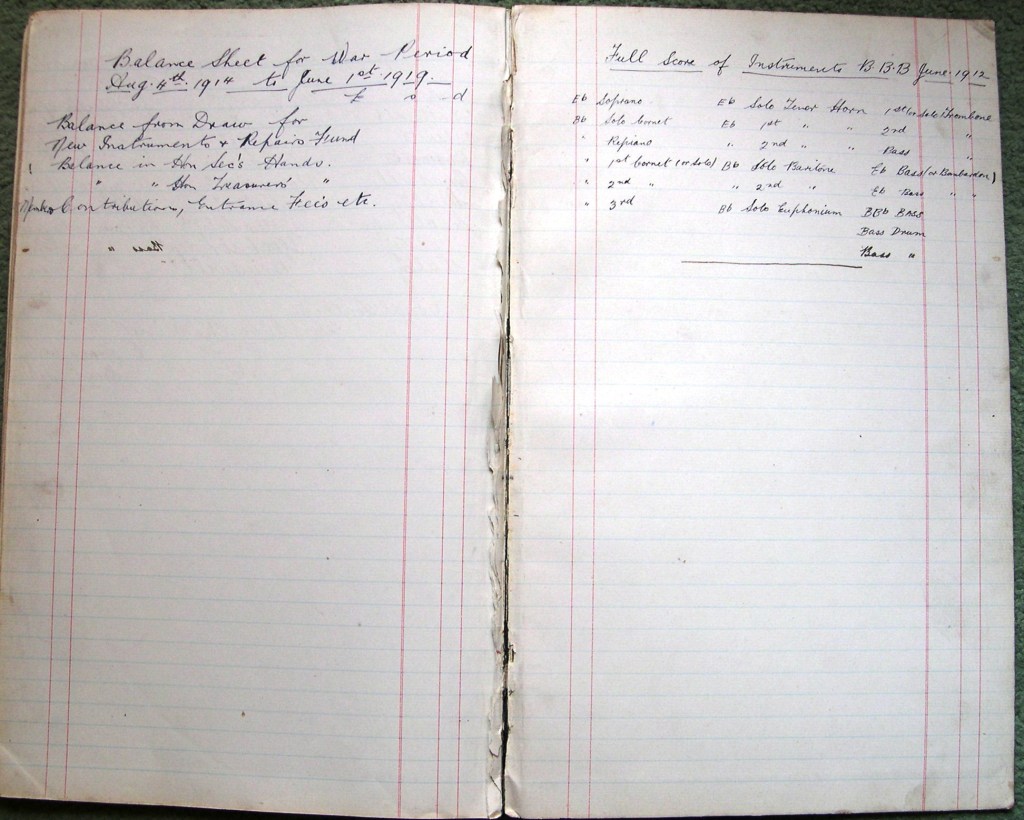 Balance Sheet for War Period
Aug. 4th. 1914 to June 1st. 1919.
£ s d
Balance from Draw for
New Instruments & Repairs Fund
Balance in Hon Sec's Hands.
" " Hon Treasurers' "
Members Contributions, Entrance Fees etc.
Full Score of Instruments B.B.B June 1912
Eb Soprano. Eb Solo Tenor Horn 1st (or Solo) Trombone
Bb Solo Cornet Eb 1st " " 2nd "
" Repiano " 2nd " " Bass "
" 1st Cornet (or Solo) Bb Solo Baritone Eb Bass (or Bombardon)
" 2nd " " 2nd " Eb Bass " "
" 3rd Bb Solo Euphonium BBb Bass
Bass Drum
Bass "